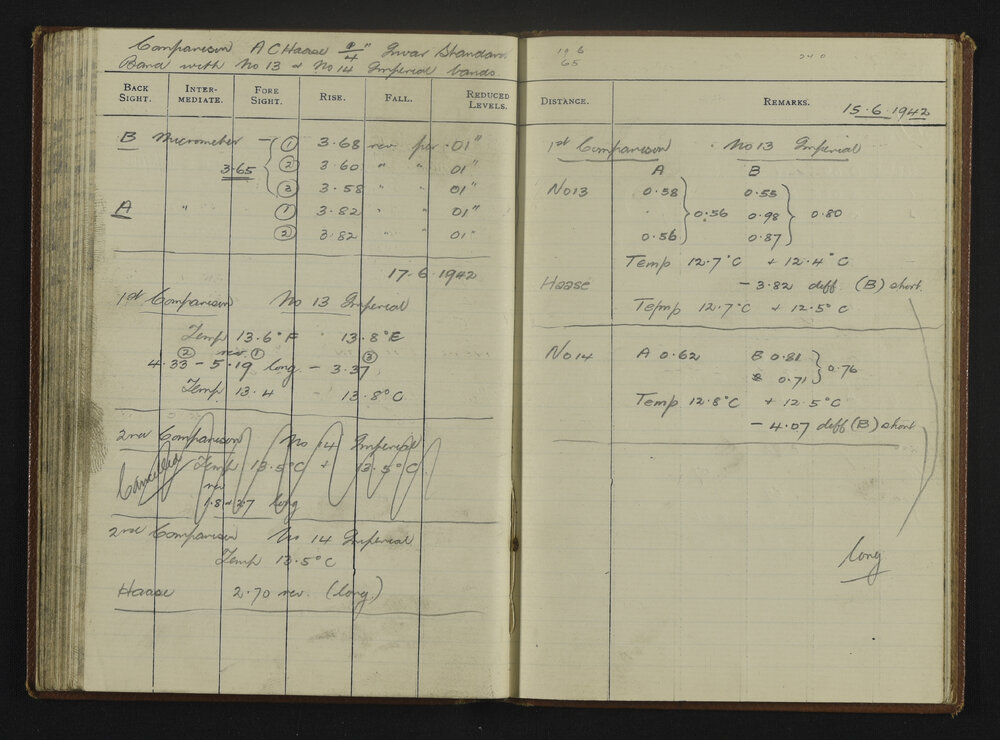 Comparison A C Haase 1/4" Invar Standard
Band with No 13 & No 14 Imperial bands.
BACK SIGHT. INTER-MEDIATE. FORE SIGHT. RISE. FALL. REDUCED LEVELS.
B Micrometer - ① 3.68 rev. per .01"
3.65 ② 3.60 " " 01"
③ 3.58 " " 01"
A " ① 3.82 " " 01"
② 3.82 " " 01"
17.6.1942
1st Comparison No 13 Imperial
Temp 13.6°F 13.8°F
② rev. ① ③
4.33 - 5.19 long - 3.37
Temp 13.4 13.8°C
2nd Comparison No 14 Imperial
Cancelled Temp 13.5°C + 13.5°C
rev
long
2nd Comparison No 14 Imperial
Temp 13.5°C
Haase 2.70 rev. (long.)
DISTANCE. REMARKS.
15.6.1942
1st Comparison No 13 Imperial
A B
No 13 0.58 0.55
" 0.56 0.98 0.80
0.56 0.87
Temp 12.7°C + 12.4°C
Haase - 3.82 diff (B) short.
Temp 12.7°C + 12.5°C
No 14 A 0.62 B 0.81
0.71 0.76
Temp 12.8°C + 12.5°C
- 4.07 diff (B) short
long